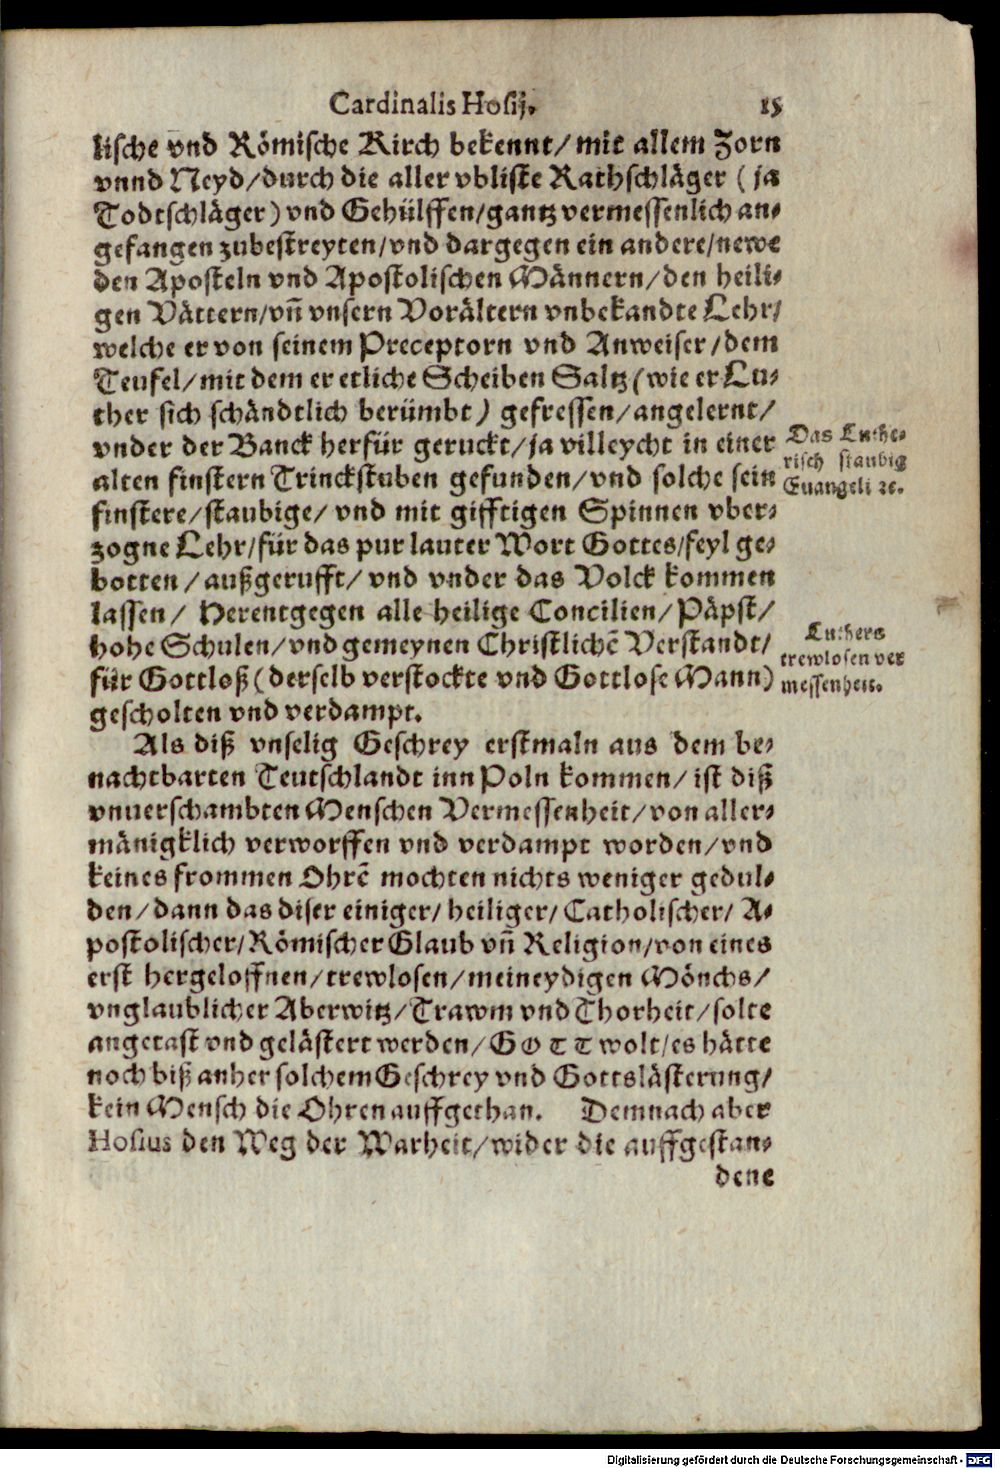 Cardinalis Hosij. 15
lische vnd Römische Kirch bekennt/ mit allem Zorn
vnnd Neyd/durch die aller vbliste Rathschläger (ja
Todtschläger) vnd Gehülffen/gantz vermessenlich an-
gefangen zubestreyten/vnd dargegen ein andere/newe
den Aposteln vnd Apostolischen Männern/den heili-
gen Vättern/vñ vnsern Vorältern vnbekandte Lehr/
welche er von seinem Preceptorn vnd Anweiser/dem
Teufel/mit dem er etliche Scheiben Saltz (wie er Lu-
ther sich schändtlich berümbt) gefressen/angelernt/
vnder der Banck herfür geruckt/ja villeycht in einer
alten finstern Trinckstuben gefunden/vnd solche sein
finstere/staubige/ vnd mit gifftigen Spinnen vber-
zogne Lehr/für das pur lauter Wort Gottes/feyl ge-
botten/außgerufft/ vnd vnder das Volck kommen
lassen/ Herentgegen alle heilige Concilien/Päpst/
hohe Schulen/vnd gemeynen Christlichē Verstandt/
für Gottloß (derselb verstockte vnd Gottlose Mann)
gescholten vnd verdampt.
Das Luthe-
risch staubig
Euangeli ꝛc.
Luthers
trewlosen ver
messenheit.
Als diß vnselig Geschrey erstmaln aus dem be-
nachtbarten Teutschlandt inn Poln kommen/ist diß
vnuerschambten Menschen Vermessenheit/von aller-
mänigklich verworffen vnd verdampt worden/vnd
keines frommen Ohrē mochten nichts weniger gedul-
den/dann das diser einiger/ heiliger/ Catholischer/ A-
postolischer/Römischer Glaub vñ Religion/von eines
erst hergeloffnen/trewlosen/meineydigen Mönchs/
vnglaublicher Aberwitz/Trawm vnd Thorheit/solte
angetast vnd gelästert werden/GOTT wolt/es hätte
noch biß anher solchem Geschrey vnd Gottslästerung/
kein Mensch die Ohren auffgethan. Demnach aber
Hosius den Weg der Warheit/wider die auffgestan-
dene
Digitalisierung gefördert durch die Deutsche Forschungsgemeinschaft - DFG